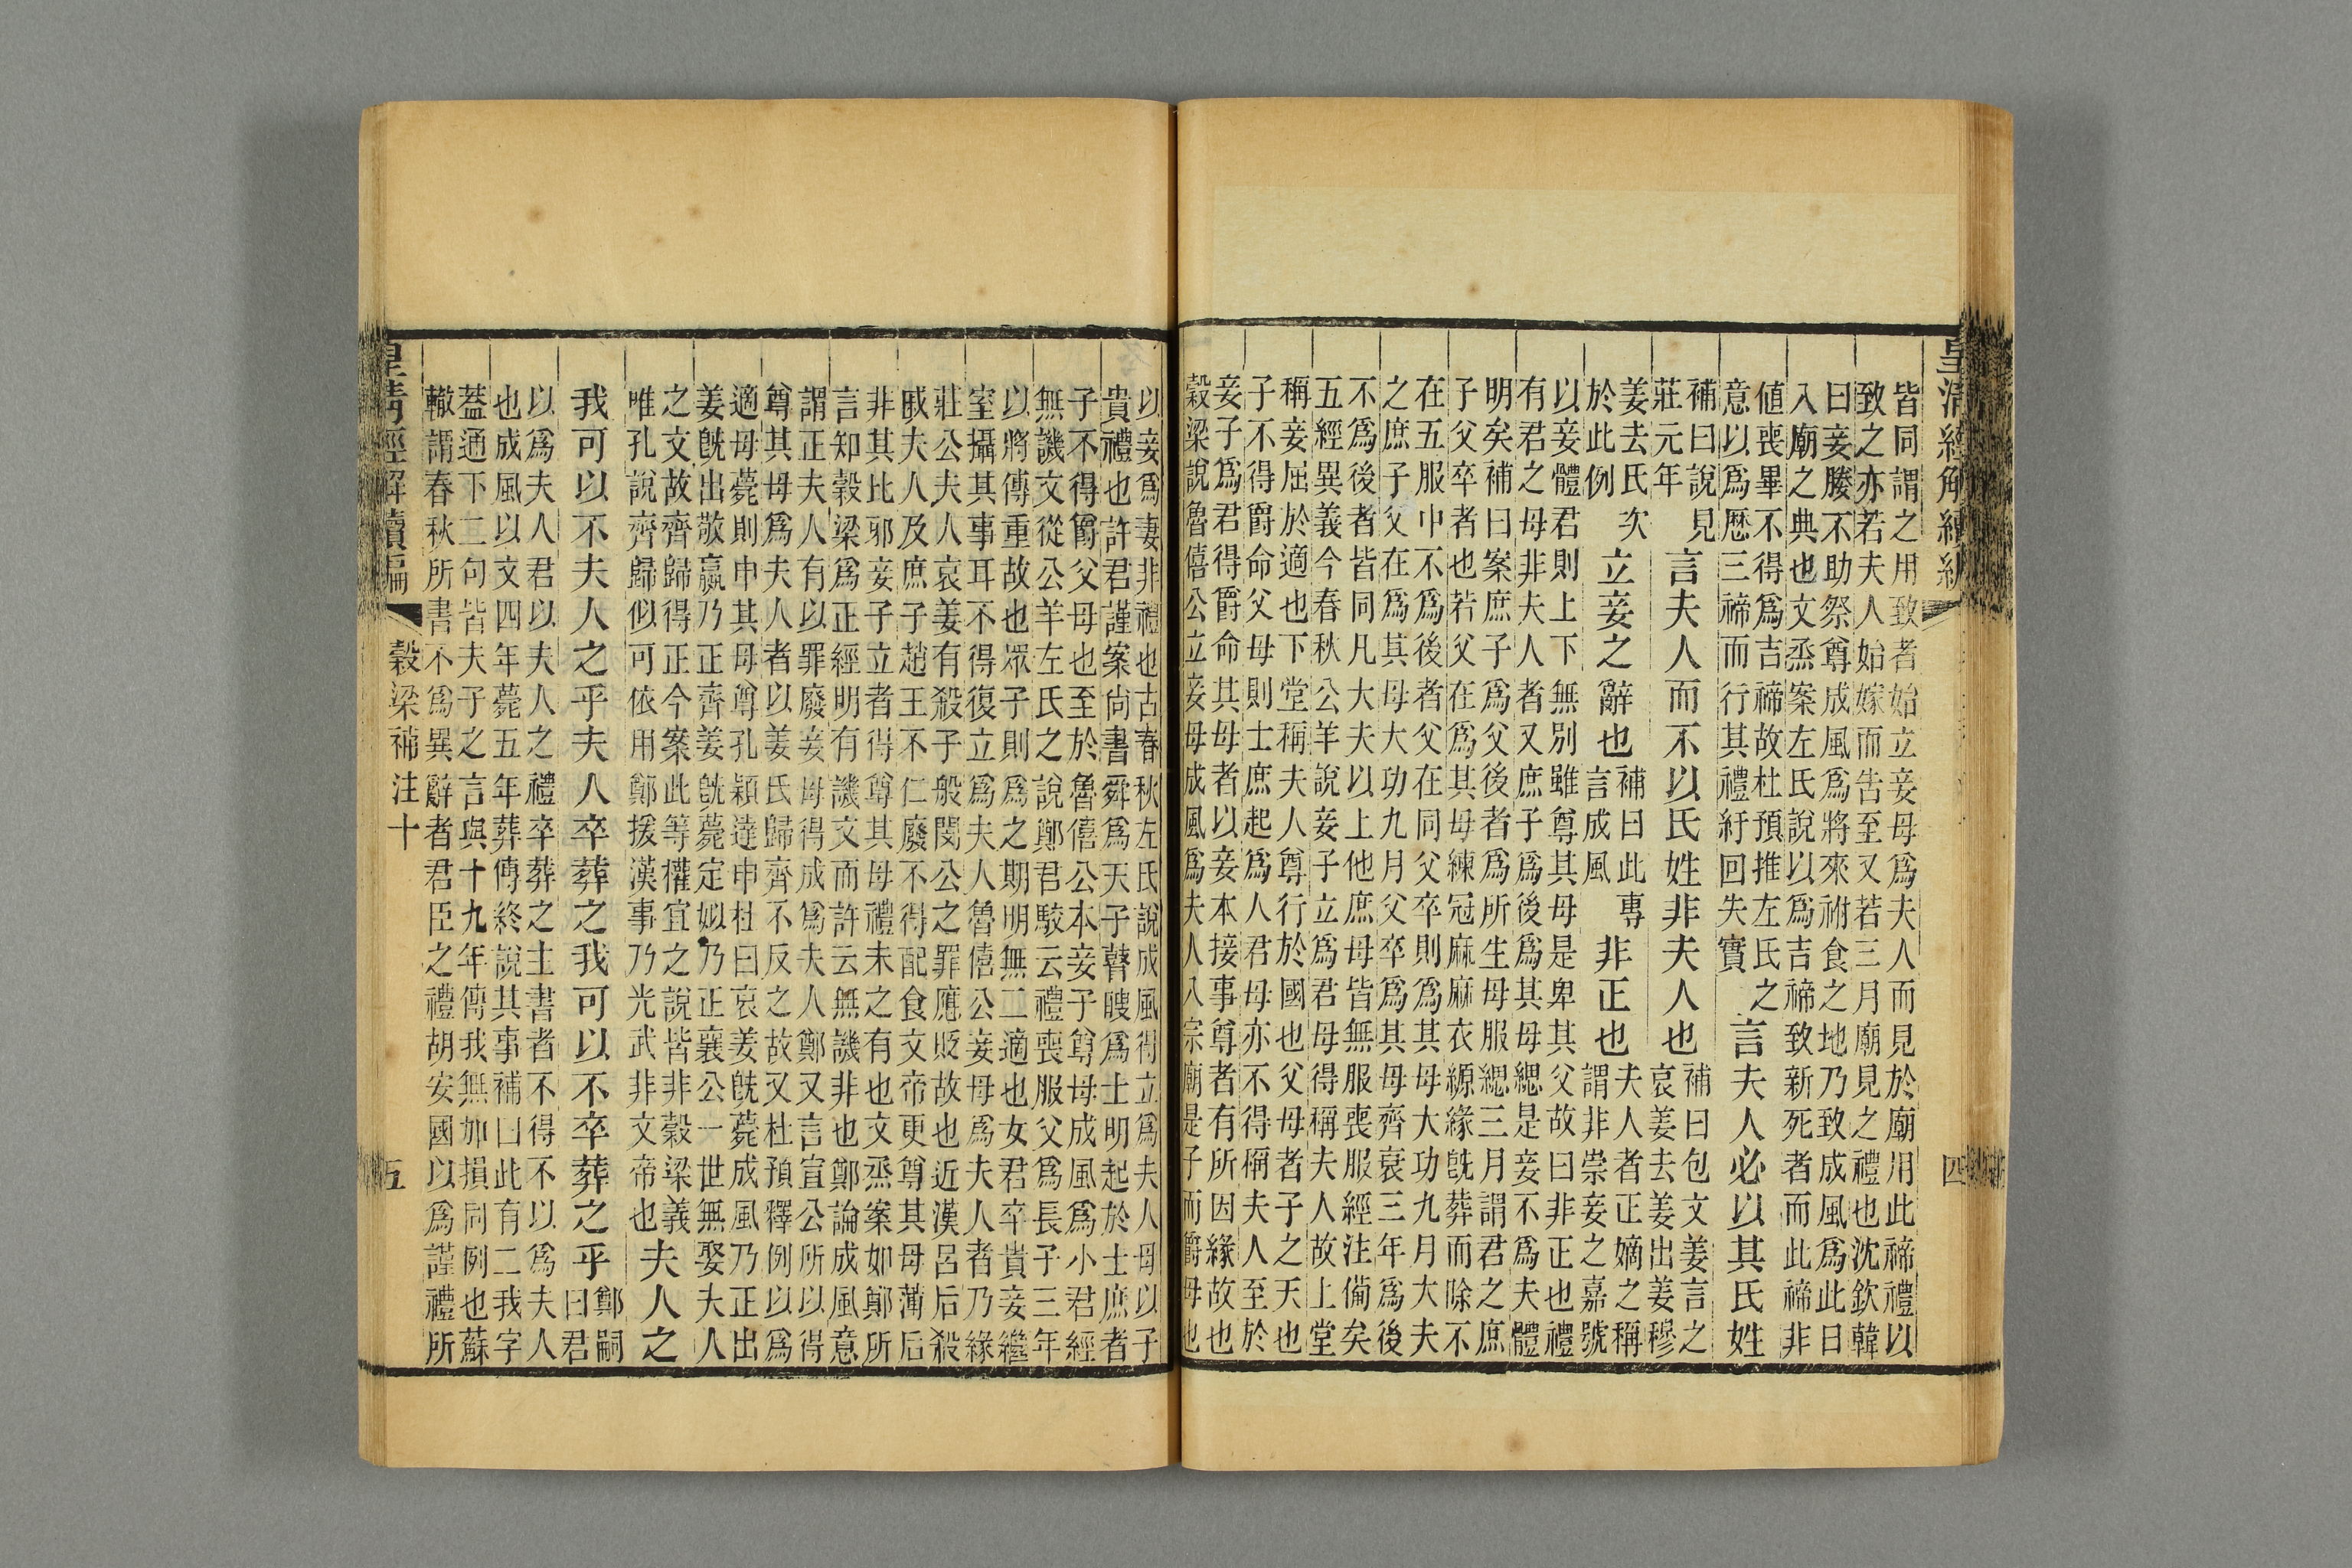 皇清經解續編
四
皆同謂之用致者始立妾母爲夫人而見於廟用此禘禮以
致之亦若夫人始嫁而告至又若三月廟見之禮也沈欽韓
曰妾媵不助祭尊成風爲將來祔食之地乃致成風爲此日
入廟之典也文烝案左氏說以爲吉禘致新死者而此禘非
値喪畢不得爲吉禘故杜預推左氏之
意以爲厯三禘而行其禮紆回失實
言夫人必以其氏姓
補曰說見
莊元年
言夫人而不以氏姓非夫人也
補曰包文姜言之
哀姜去姜出姜穆
姜去氏次
於此例
立妾之辭也
補曰此專
言成風
非正也
夫人者正嫡之稱
謂非崇妾之嘉號
以妾體君則上下無別雖尊其母是卑其父故曰非正也禮
有君之母非夫人者又庶子爲後爲其母緦是妾不爲夫體
明矣補曰案庶子爲父後者爲所生母服緦三月謂君之庶
子父卒者也若父在爲其母練冠麻麻衣縓緣旣葬而除不
在五服中不爲後者父在同父卒則爲其母大功九月大夫
之庶子父在爲其母大功九月父卒爲其母齊衰三年爲後
不爲後者皆同凡大夫以上他庶母皆無服喪服經注備矣
五經異義今春秋公羊說妾子立爲君母得稱夫人故上堂
稱妾屈於適也下堂稱夫人尊行於國也父母者子之天也
子不得爵命父母則士庶起爲人君母亦不得稱夫人至於
妾子爲君得爵命其母者以妾本接事尊者有所因緣故也
穀梁說魯僖公立妾母成風爲夫人入宗廟是子而爵母也
以妾爲妻非禮也古春秋左氏說成風得立爲夫人母以子
貴禮也許君謹案尚書舜爲天子瞽瞍爲士明起於士庶者
子不得爵父母也至於魯僖公本妾子尊母成風爲小君經
無譏文從公羊左氏之說鄭君駁云禮喪服父爲長子三年
以將傳重故也眾子則爲之期明無二適也女君卒貴妾繼
室攝其事耳不得復立爲夫人魯僖公妾母爲夫人者乃緣
莊公夫人哀姜有殺子般閔公之罪應貶故也近漢呂后殺
戚夫人及庶子趙王不仁廢不得配食文帝更尊其母薄后
非其比邪妾子立者得尊其母禮未之有也文烝案如鄭所
言知穀梁爲正經明有譏文而許云無譏非也鄭論成風意
謂正夫人有以罪廢妾母得成爲夫人鄭又言宣公所以得
尊其母爲夫人者以姜氏歸齊不反之故又杜預釋例以爲
適母薨則申其母尊孔穎達申杜曰哀姜旣薨成風乃正出
姜旣出敬嬴乃正齊姜旣薨定姒乃正襄公一世無娶夫人
之文故齊歸得正今案此等權宜之說皆非穀梁義
唯孔說齊歸似可依用鄭援漢事乃光武非文帝也
夫人之
我可以不夫人之乎夫人卒葬之我可以不卒葬之乎
鄭嗣
曰君
以爲夫人君以夫人之禮卒葬之主書者不得不以爲夫人
也成風以文四年薨五年葬傳終說其事補曰此有二我字
蓋通下二句皆夫子之言與十九年傳我無加損同例也蘇
轍謂春秋所書不爲異辭者君臣之禮胡安國以爲謹禮所
皇清經解續編
穀梁補注十
五